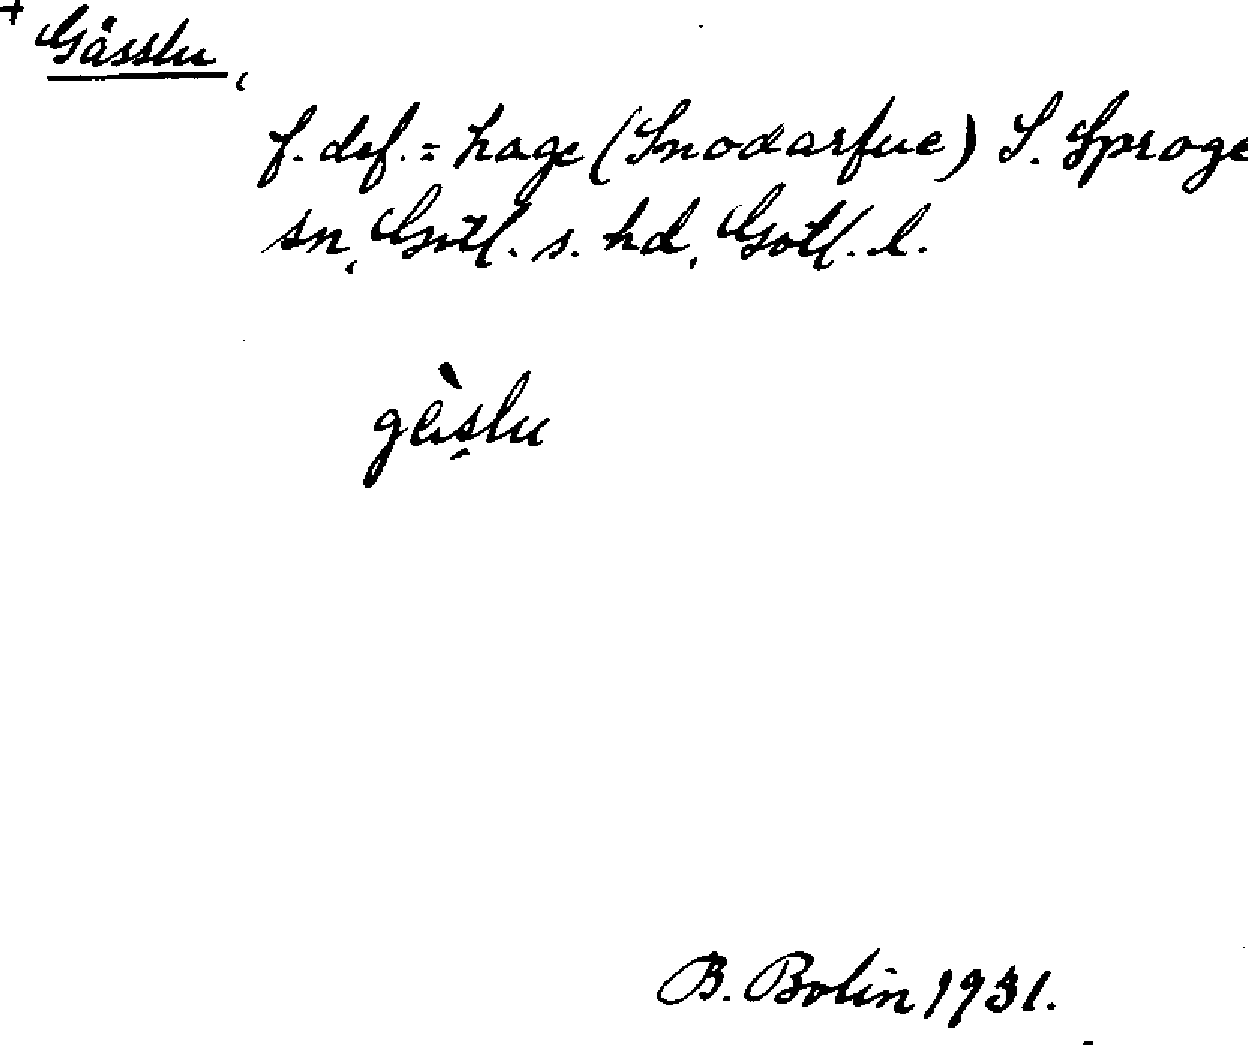 + Gässlu,
f. def. = hage (Snodarfue) S. Sproge
sn, Gotl. s. hd, Gotl. l.
gèslu
B. Bolin 1931.